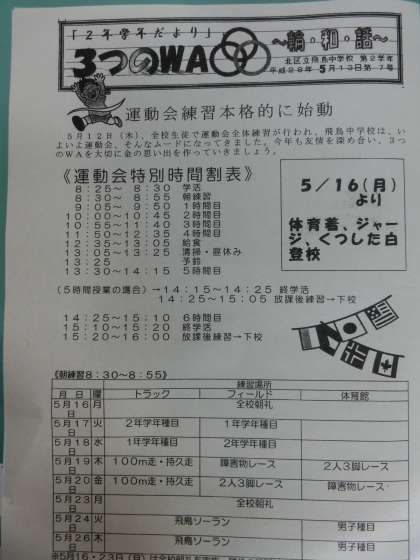 「２年学年だより」
３つのＷＡ
～輪・和・話～
北区立飛鳥中学校 第２学年
平成２８年５月１３日第７号
運動会練習本格的に始動
５月１２日（木）、全校生徒で運動会全体練習が行われ、飛鳥中学校は、い
よいよ運動会、そんなムードになってきました。今年も友情を深め合い、３つ
のＷＡを大切に金の思い出を作っていきましょう。
《運動会特別時間割表》
８：２５～ ８：３０ 学活
８：３０～ ８：５５ 朝練習
９：０５～ ９：５０ １時間目
１０：００～１０：４５ ２時間目
１０：５５～１１：４０ ３時間目
１１：５０～１２：３５ ４時間目
１２：３５～１３：０５ 給食
１３：０５～１３：２５ 清掃・昼休み
１３：２５ 予鈴
１３：３０～１４：１５ ５時間目
５／１６（月）
より
体育着、ジャー
ジ、くつした白
登校
（５時間授業の場合）→１４：１５～１４：２５ 終学活
１４：２５～１５：０５ 放課後練習→下校
１４：２５～１５：１０ ６時間目
１５：１０～１５：２０ 終学活
１５：２０～１６：００ 放課後練習→下校
《朝練習８：３０～８：５５》
練習場所
月 日 曜 トラック フィールド 体育館
５月１６日 月 全校朝礼
５月１７日 火 ２年学年種目 １年学年種目
５月１８日 水 １年学年種目 ２年学年種目
５月１９日 木 １００ｍ走・持久走 障害物レース ２人３脚レース
５月２０日 金 １００ｍ走・持久走 ２人３脚レース 障害物レース
５月２３日 月 全校朝礼
５月２４日 火 飛鳥ソーラン 男子種目
５月２６日 木 飛鳥ソーラン 男子種目